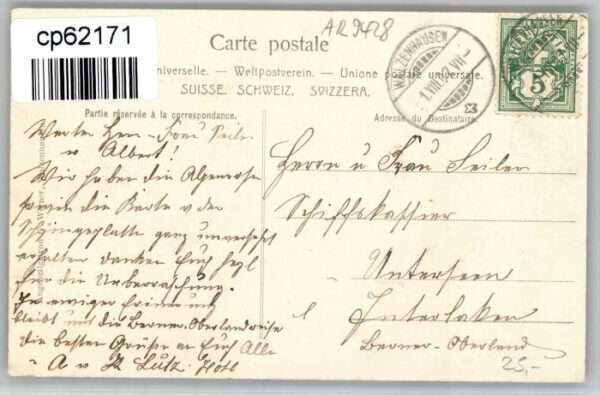 cp62171
AR9428
Carte postale
Universelle. — Weltpostverein. — Unione postale universale.
SUISSE. SCHWEIZ. SVIZZERA.
Partie réservée à la correspondance.
Adresse du Destinataire.
WALZENHAUSEN
1.VIII.07.VII-
5
Werten Herr - Frau Seiler
u Albert!
Wir haben die Alpenrosen
sowie die Karte v der
Schynigeplatte ganz unversehrt
erhalten danken Euch herzl
für die Ueberraschung.
In ewiger Erinnerung
bleibt uns die Berner-Oberlandreise
die besten Grüße an Euch Alle
A u Lutz
Herrn u Frau Seiler
Schiffskassier
Unterseen
Interlaken
Berner-Oberland
25,-